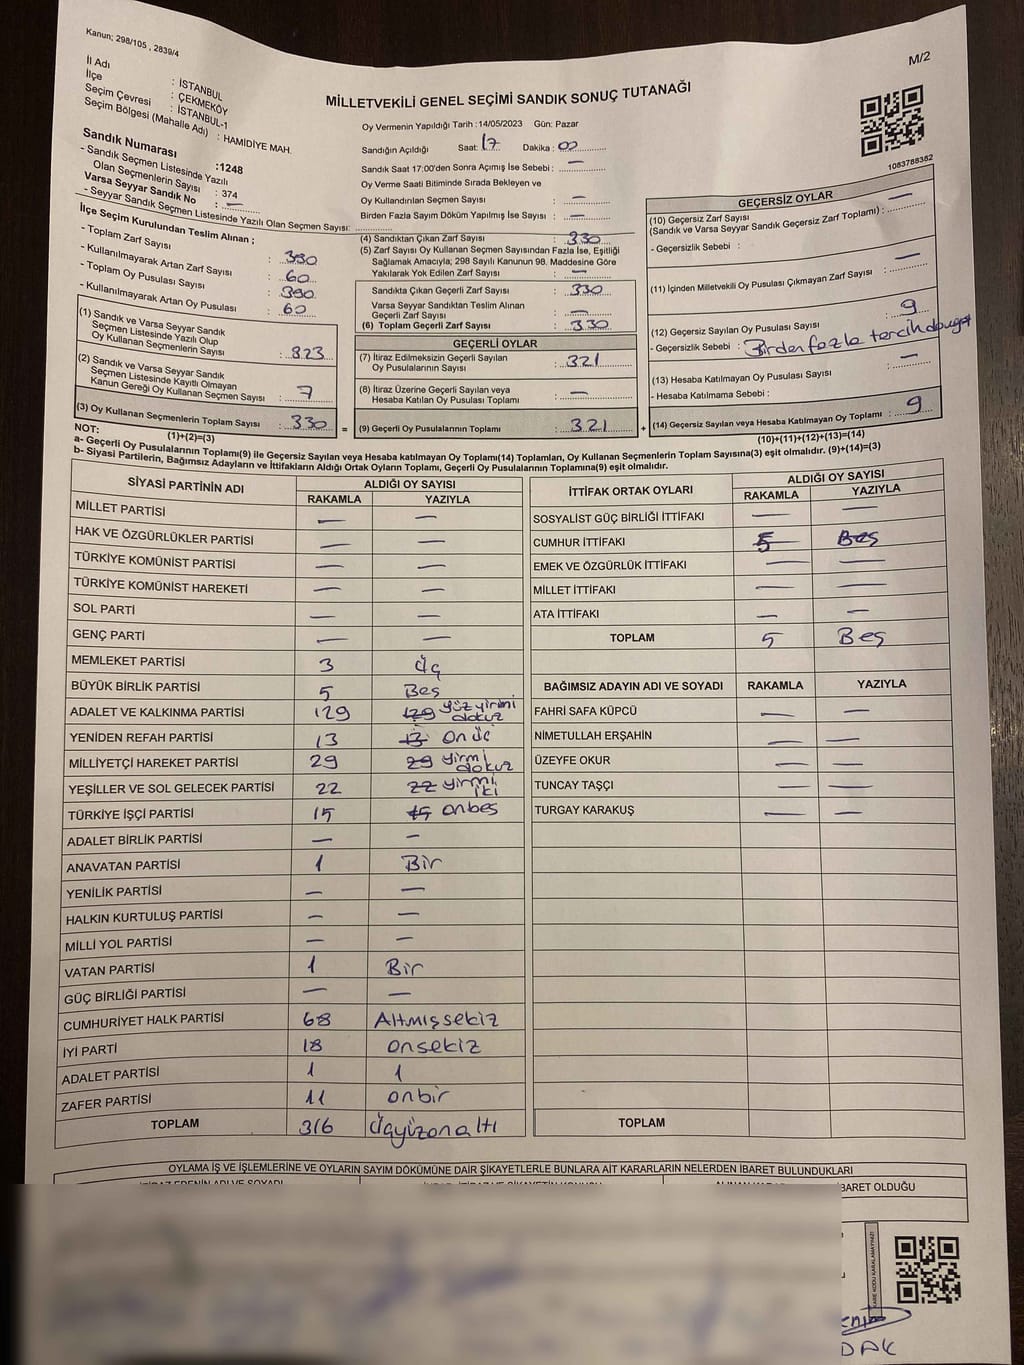 Kanun; 298/105 , 2839/4
M/2
İl Adı : İSTANBUL
İlçe : ÇEKMEKÖY
Seçim Çevresi : İSTANBUL-1
Seçim Bölgesi (Mahalle Adı) : HAMİDİYE MAH.
MİLLETVEKİLİ GENEL SEÇİMİ SANDIK SONUÇ TUTANAĞI
Oy Vermenin Yapıldığı Tarih : 14/05/2023 Gün: Pazar
Sandığın Açıldığı Saat: 17 Dakika : 00
Sandık Saat 17:00'den Sonra Açımış İse Sebebi : —
Oy Verme Saati Bitiminde Sırada Bekleyen ve
Oy Kullandırılan Seçmen Sayısı : —
Birden Fazla Sayım Döküm Yapılmış İse Sayısı : —
1083788382
Sandık Numarası :1248
- Sandık Seçmen Listesinde Yazılı
Olan Seçmenlerin Sayısı : 374
Varsa Seyyar Sandık No : —
- Seyyar Sandık Seçmen Listesinde Yazılı Olan Seçmen Sayısı:
İlçe Seçim Kurulundan Teslim Alınan ;
- Toplam Zarf Sayısı : 390
- Kullanılmayarak Artan Zarf Sayısı : 60
- Toplam Oy Pusulası Sayısı : 390
- Kullanılmayarak Artan Oy Pusulası : 60
(1) Sandık ve Varsa Seyyar Sandık
Seçmen Listesinde Yazılı Olup
Oy Kullanan Seçmenlerin Sayısı : 323
(2) Sandık ve Varsa Seyyar Sandık
Seçmen Listesinde Kayıtlı Olmayan
Kanun Gereği Oy Kullanan Seçmen Sayısı : 7
(3) Oy Kullanan Seçmenlerin Toplam Sayısı : 330
(1)+(2)=(3)
(4) Sandıktan Çıkan Zarf Sayısı : 330
(5) Zarf Sayısı Oy Kullanan Seçmen Sayısından Fazla İse, Eşitliği
Sağlamak Amacıyla; 298 Sayılı Kanunun 98. Maddesine Göre
Yakılarak Yok Edilen Zarf Sayısı : —
Sandıkta Çıkan Geçerli Zarf Sayısı : 330
Varsa Seyyar Sandıktan Teslim Alınan
Geçerli Zarf Sayısı : —
(6) Toplam Geçerli Zarf Sayısı : 330
GEÇERLİ OYLAR
(7) İtiraz Edilmeksizin Geçerli Sayılan
Oy Pusulalarının Sayısı : 321
(8) İtiraz Üzerine Geçerli Sayılan veya
Hesaba Katılan Oy Pusulası Toplamı : —
= (9) Geçerli Oy Pusulalarının Toplamı : 321 +
GEÇERSİZ OYLAR
(10) Geçersiz Zarf Sayısı
(Sandık ve Varsa Seyyar Sandık Geçersiz Zarf Toplamı) : —
- Geçersizlik Sebebi :
(11) İçinden Milletvekili Oy Pusulası Çıkmayan Zarf Sayısı : —
(12) Geçersiz Sayılan Oy Pusulası Sayısı : 9
- Geçersizlik Sebebi : Birden fazla tercih
(13) Hesaba Katılmayan Oy Pusulası Sayısı : —
- Hesaba Katılmama Sebebi :
(14) Geçersiz Sayılan veya Hesaba Katılmayan Oy Toplamı : 9
(10)+(11)+(12)+(13)=(14)
NOT:
a- Geçerli Oy Pusulalarının Toplamı(9) ile Geçersiz Sayılan veya Hesaba katılmayan Oy Toplamı(14) Toplamları, Oy Kullanan Seçmenlerin Toplam Sayısına(3) eşit olmalıdır. (9)+(14)=(3)
b- Siyasi Partilerin, Bağımsız Adayların ve İttifakların Aldığı Ortak Oyların Toplamı, Geçerli Oy Pusulalarının Toplamına(9) eşit olmalıdır.
SİYASİ PARTİNİN ADI ALDIĞI OY SAYISI
RAKAMLA YAZIYLA
MİLLET PARTİSİ — —
HAK VE ÖZGÜRLÜKLER PARTİSİ — —
TÜRKİYE KOMÜNİST PARTİSİ — —
TÜRKİYE KOMÜNİST HAREKETİ — —
SOL PARTİ — —
GENÇ PARTİ — —
MEMLEKET PARTİSİ 3 üç
BÜYÜK BİRLİK PARTİSİ 5 Beş
ADALET VE KALKINMA PARTİSİ 129 129 yüzyirmi dokuz
YENİDEN REFAH PARTİSİ 13 13 on üç
MİLLİYETÇİ HAREKET PARTİSİ 29 29 yirmi dokuz
YEŞİLLER VE SOL GELECEK PARTİSİ 22 22 yirmi iki
TÜRKİYE İŞÇİ PARTİSİ 15 15 onbeş
ADALET BİRLİK PARTİSİ — —
ANAVATAN PARTİSİ 1 Bir
YENİLİK PARTİSİ — —
HALKIN KURTULUŞ PARTİSİ — —
MİLLİ YOL PARTİSİ — —
VATAN PARTİSİ 1 Bir
GÜÇ BİRLİĞİ PARTİSİ — —
CUMHURİYET HALK PARTİSİ 68 Altmışsekiz
İYİ PARTİ 18 onsekiz
ADALET PARTİSİ 1 1
ZAFER PARTİSİ 11 onbir
TOPLAM 316 üçyüzonaltı
İTTİFAK ORTAK OYLARI ALDIĞI OY SAYISI
RAKAMLA YAZIYLA
SOSYALİST GÜÇ BİRLİĞİ İTTİFAKI — —
CUMHUR İTTİFAKI 5 Beş
EMEK VE ÖZGÜRLÜK İTTİFAKI — —
MİLLET İTTİFAKI — —
ATA İTTİFAKI — —
TOPLAM 5 Beş
BAĞIMSIZ ADAYIN ADI VE SOYADI RAKAMLA YAZIYLA
FAHRİ SAFA KÜPCÜ — —
NİMETULLAH ERŞAHİN — —
ÜZEYFE OKUR — —
TUNCAY TAŞÇI — —
TURGAY KARAKUŞ — —
TOPLAM
OYLAMA İŞ VE İŞLEMLERİNE VE OYLARIN SAYIM DÖKÜMÜNE DAİR ŞİKAYETLERLE BUNLARA AİT KARARLARIN NELERDEN İBARET BULUNDUKLARI
İBARET OLDUĞU
KARE KODU KARALAMAYINIZ!